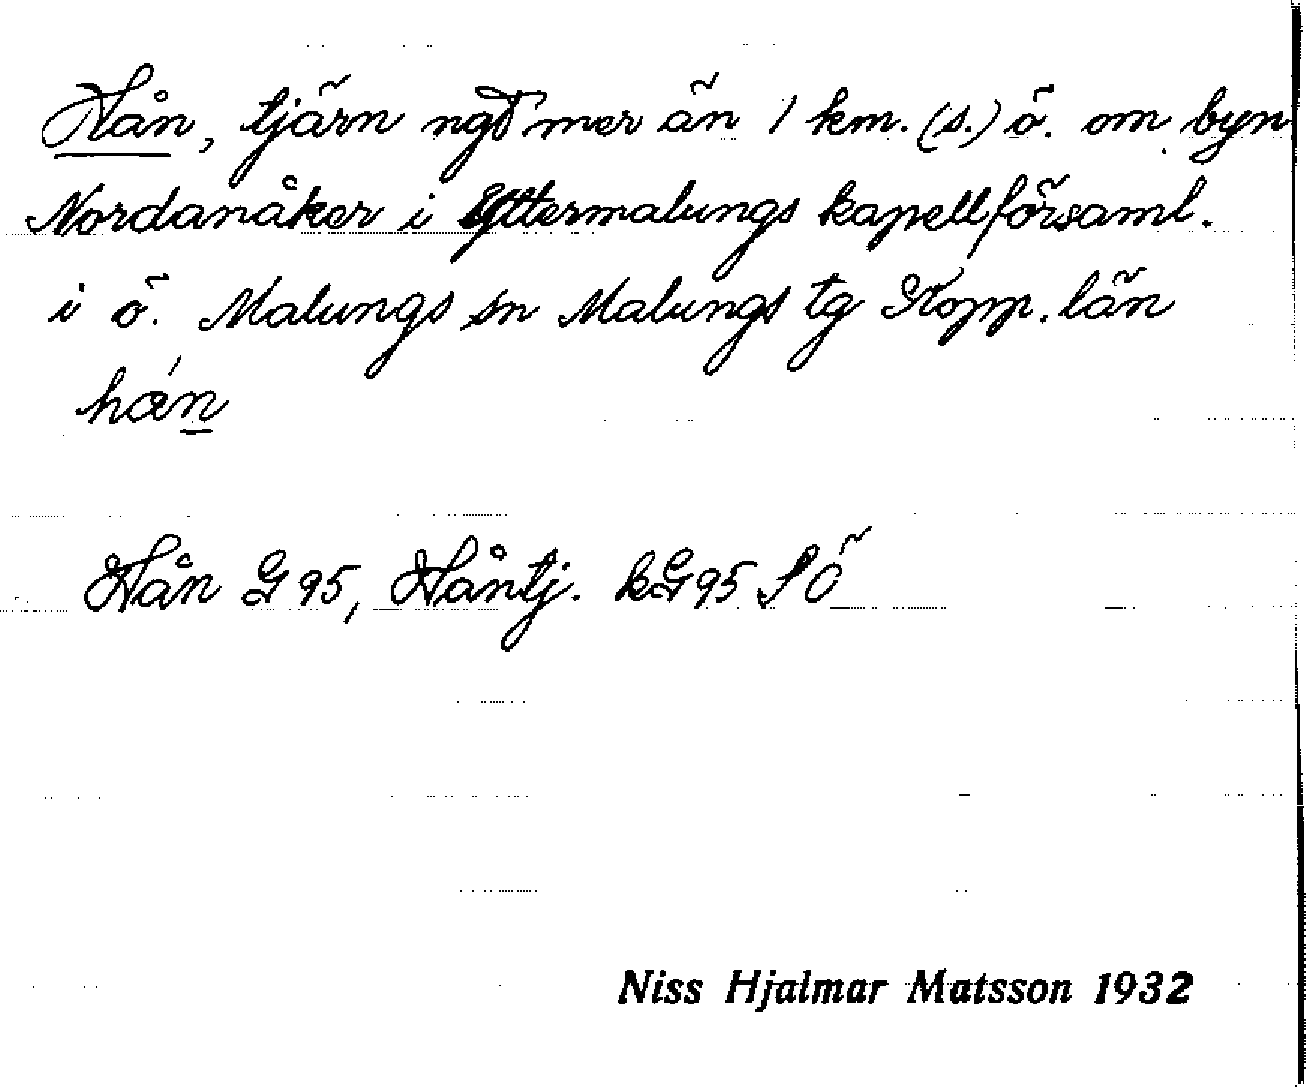 Hån, tjärn ngt mer än 1 km. (s.) ö. om byn
Nordanåker i Yttermalungs kapellförsaml.
i ö. Malungs sn Malungs tg Kopp. län
hα´n
Hån G95, Håntj. kG95 SÖ
Niss Hjalmar Matsson 1932